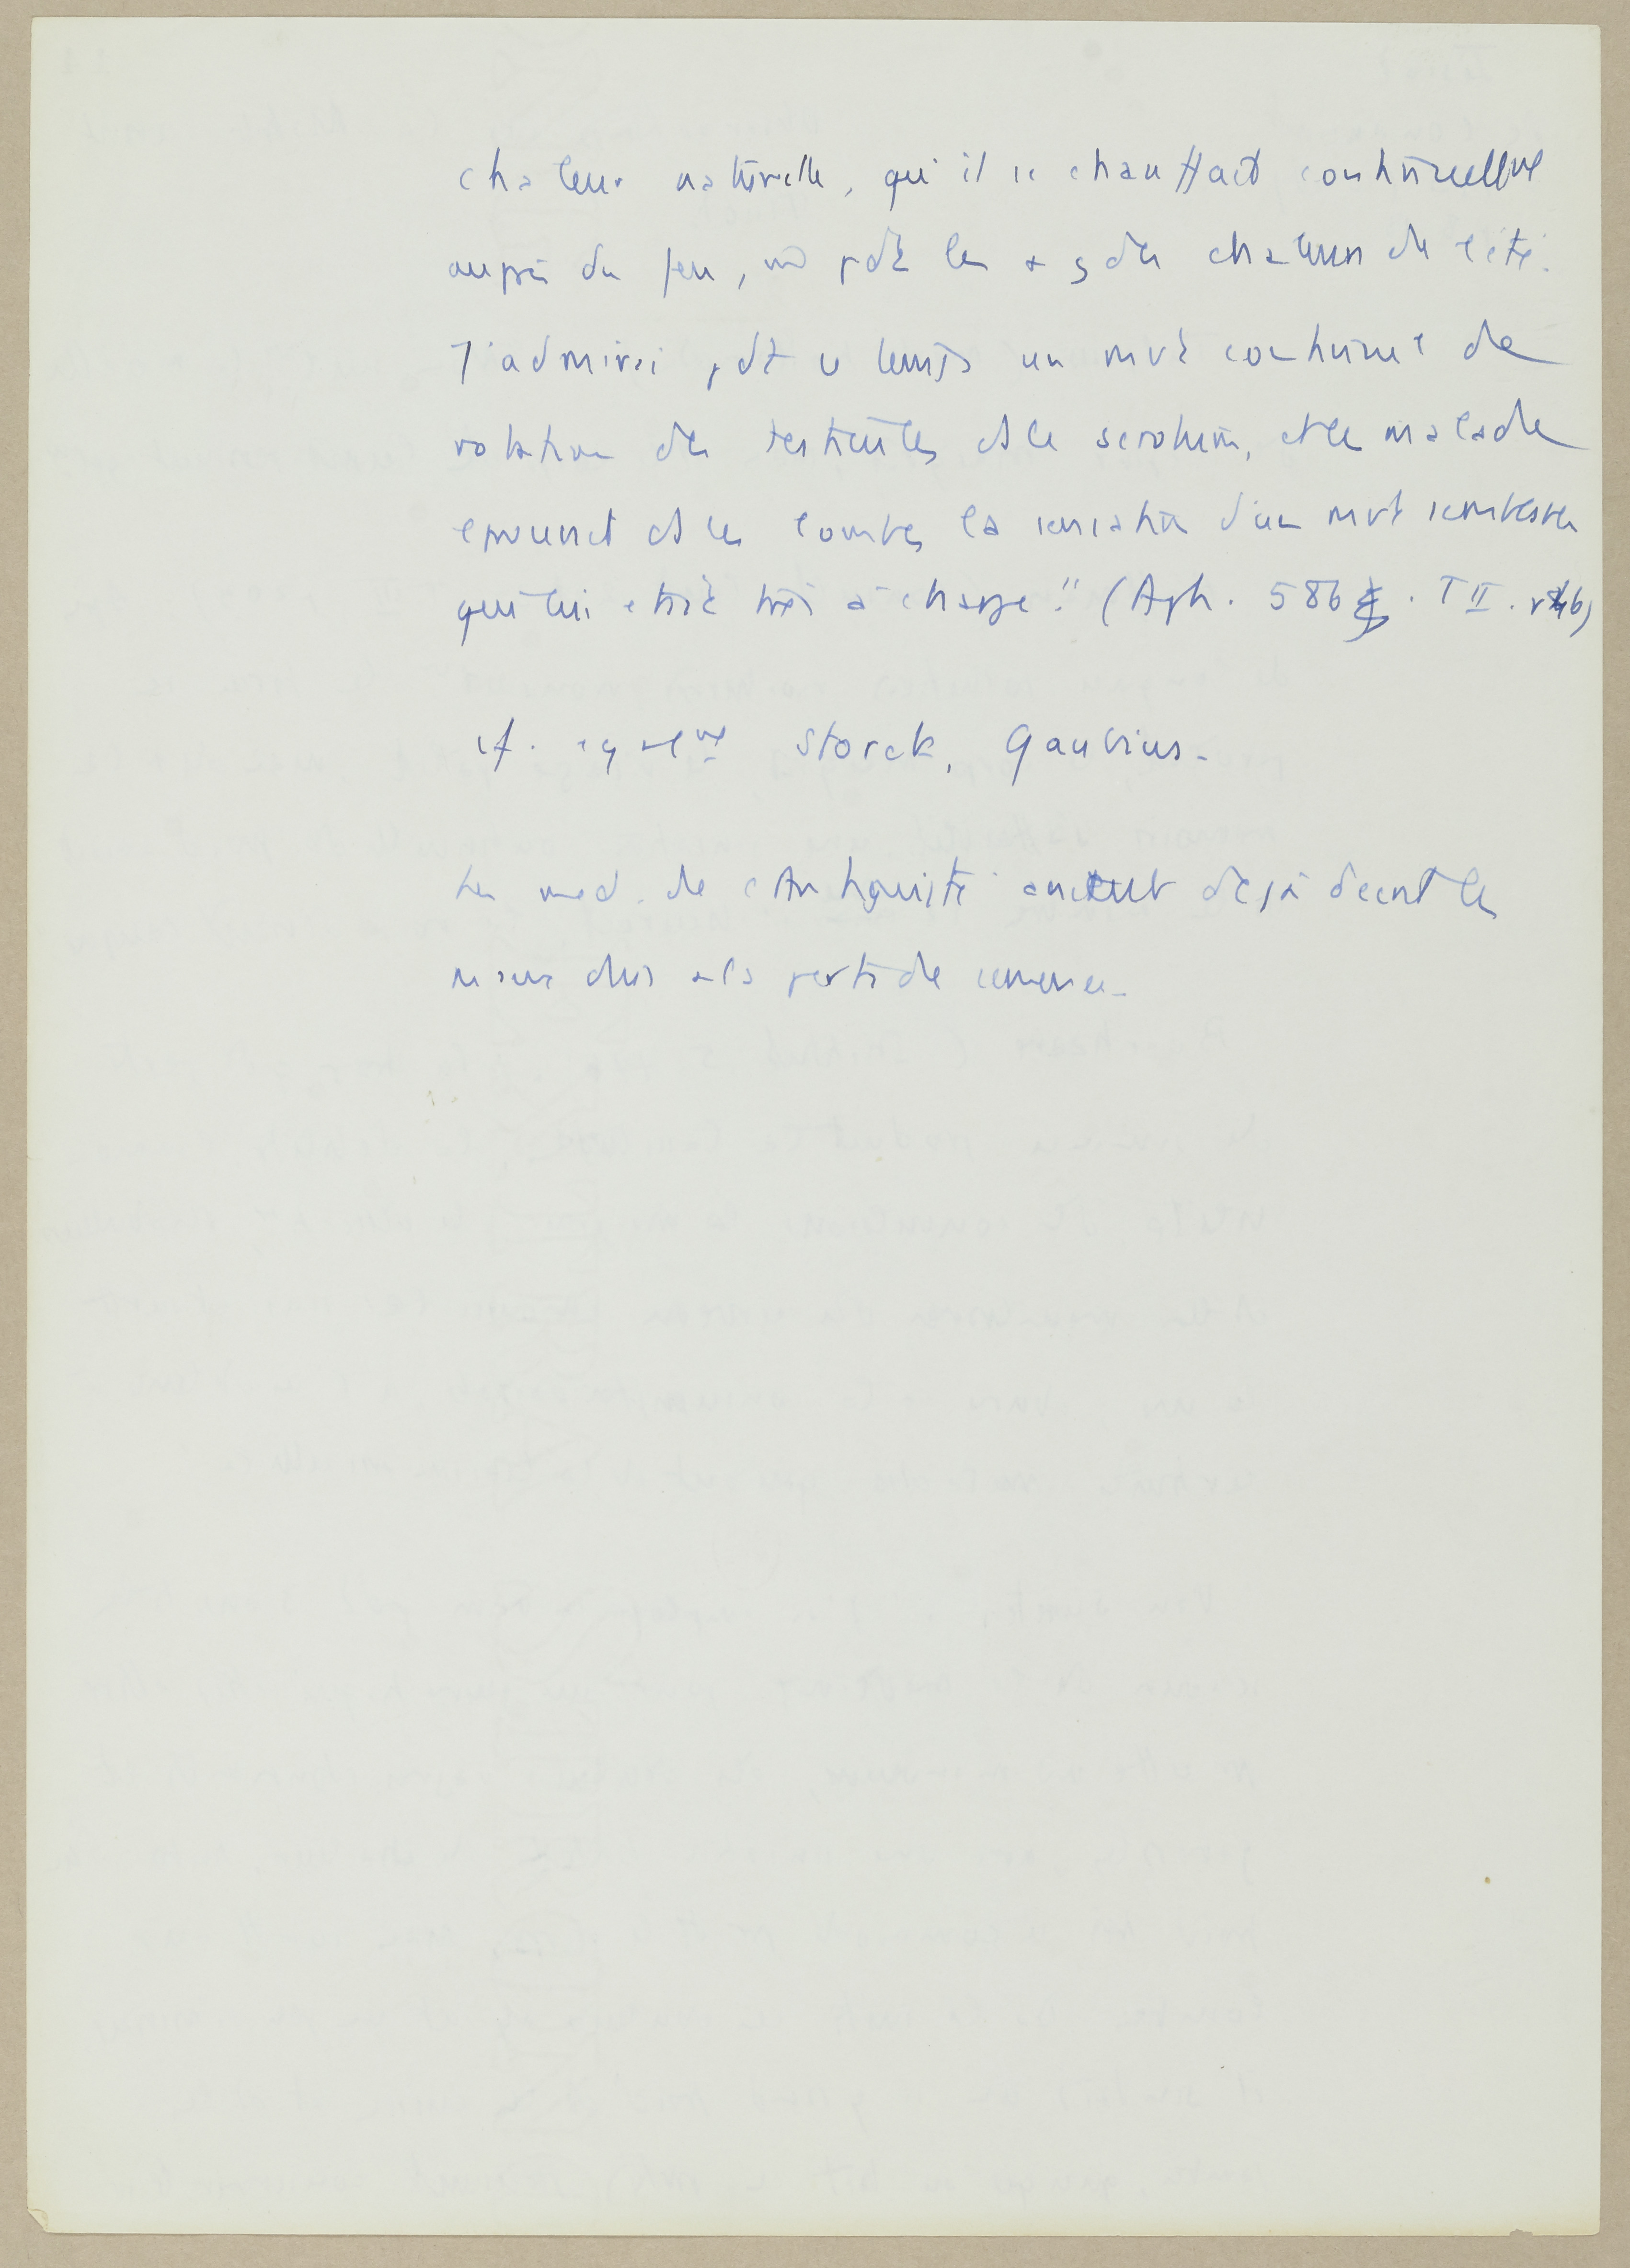 chaleur naturelle, qu'il se chauffait continuellmt
auprès du feu, m̂ pdt les + gdes chaleurs de l'été.
J'admirai pdt ce temps un mvt continuel de
rotation des testicules ds le scrotum, et le malade
éprouvait ds les lombes la sensation d'un mvt semblable
qui lui était très à charge." (Aph. 586. T II. 46)
cf. égalemt Storck, Gaubius.
Les med. de l'Antiquité avaient déjà décrit les
maux dus à la perte de semence.